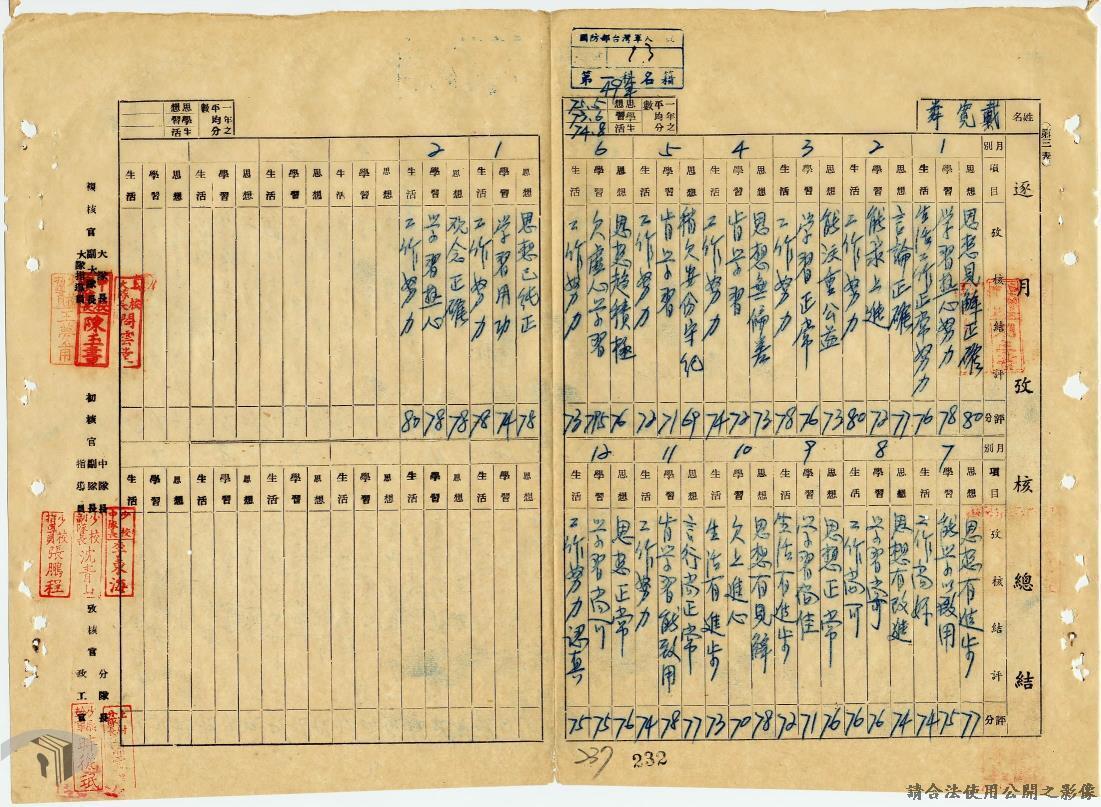 國防部台灣軍人
13
第一科名籍
(第三表)
姓名
戴寬彝
逐月攷核總結
一年之平均分數
思想 75.5
學習 73.6
生活 74.8
月別 項目 攷核結評 評分
1
思想 思想見解正確 80
學習 學習熱心努力 78
生活 生活工作正常努力 76
2
思想 言論正確 77
學習 能求上進 72
生活 工作努力 80
3
思想 能注重公益 73
學習 學習正常 76
生活 工作努力 78
4
思想 思想無偏差 73
學習 肯學習 72
生活 工作努力 74
5
思想 稍欠安份守紀 69
學習 肯學習 71
生活 工作努力 72
6
思想 思想趨積極 76
學習 欠虛心學習
生活 工作努力 73
月別 項目 攷核結評 評分
7
思想 思想有進步 77
學習 能學以致用 75
生活 工作尚好 74
8
思想 思想有改進 74
學習 學習尚可 76
生活 工作尚可 76
9
思想 思想正常 76
學習 學習尚佳 71
生活 生活有進步 72
10
思想 思想有見解 78
學習 欠上進心 70
生活 生活有進步 73
11
思想 言行尚正常 77
學習 肯學習能致用 78
生活 工作努力 74
12
思想 思想正常 76
學習 學習尚可 75
生活 工作努力認真 75
237
232
一年之平均分數
思想
學習
生活
1
思想 思想已純正 78
學習 學習用功 74
生活 工作努力 78
2
思想 观念正確 78
學習 學習熱心 78
生活 工作努力 80
思想 學習 生活
思想 學習 生活
思想 學習 生活
思想 學習 生活
思想 學習 生活
思想 學習 生活
思想 學習 生活
思想 學習 生活
思想 學習 生活
思想 學習 生活
複核官
大隊長
副大隊長
大隊指導員
陳玉書
初核官
中隊長
副隊長
指導員
少校
副隊長 少校 沈青
指導員 少校 張鵬程
攷核官
分隊長
政工官
請合法使用公開之影像